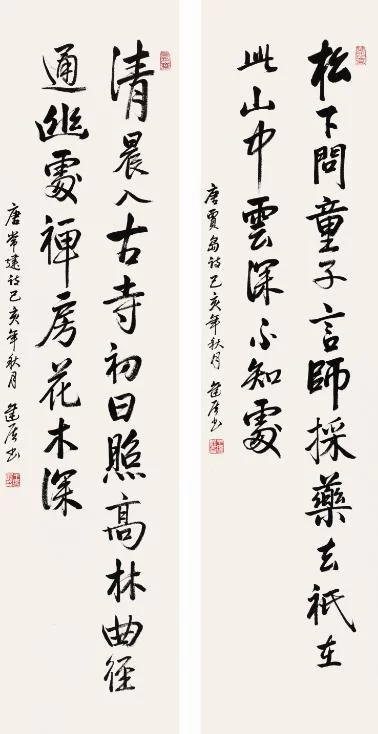 松下問童子言師採藥去祇在
此山中雲深不知處
唐賈島詩己亥年秋月
清晨入古寺初日照高林曲徑
通幽處禪房花木深
唐常建詩己亥年秋月